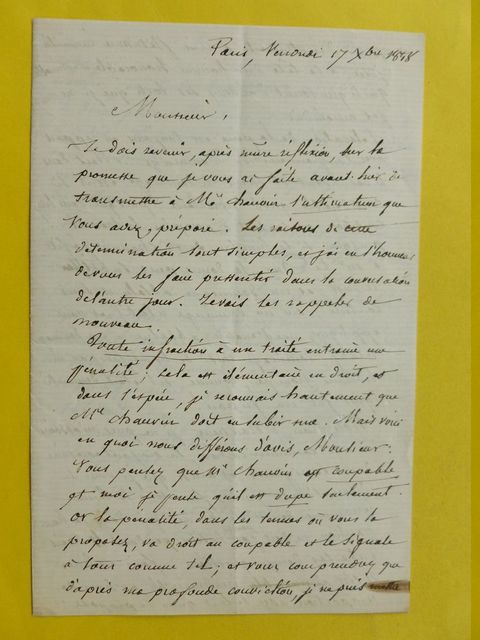 Paris, Vendredi 17 Xbre 1858
Monsieur,
Je dois revenir, après mûre réflexion, sur la
promesse que je vous ai faite avant-hier de
transmettre à Mr Chauvin l'ultimatum que
vous avez préparé. Les raisons de cette
détermination sont simples, et j'ai eu l'honneur
de vous les faire pressentir dans la conversation
de l'autre jour. Je vais les rappeler de
nouveau.
Toute infraction à un traité entraîne une
pénalité ; cela est élémentaire en droit, et
dans l'espèce, je reconnais hautement que
Mr Chauvin doit en subir une. Mais voici
en quoi nous différons d'avis, Monsieur :
Vous pensez que Mr Chauvin est coupable
et moi je pense qu'il est dupe seulement.
Or la pénalité, dans les termes où vous la
proposez, va droit au coupable et le signale
à tous comme tel ; et vous comprendrez que
d'après ma profonde conviction, je ne puis mettre